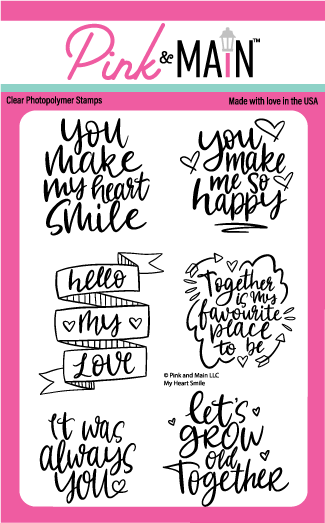 Pink & MAIN™
Clear Photopolymer Stamps
Made with love in the USA
you
make
my heart
smile
you
make
me so
happy
hello
my
love
Together
is my
favourite
peace
to be
© Pink and Main LLC
My Heart Smile
It was
always
you
let's
grow
old
Together